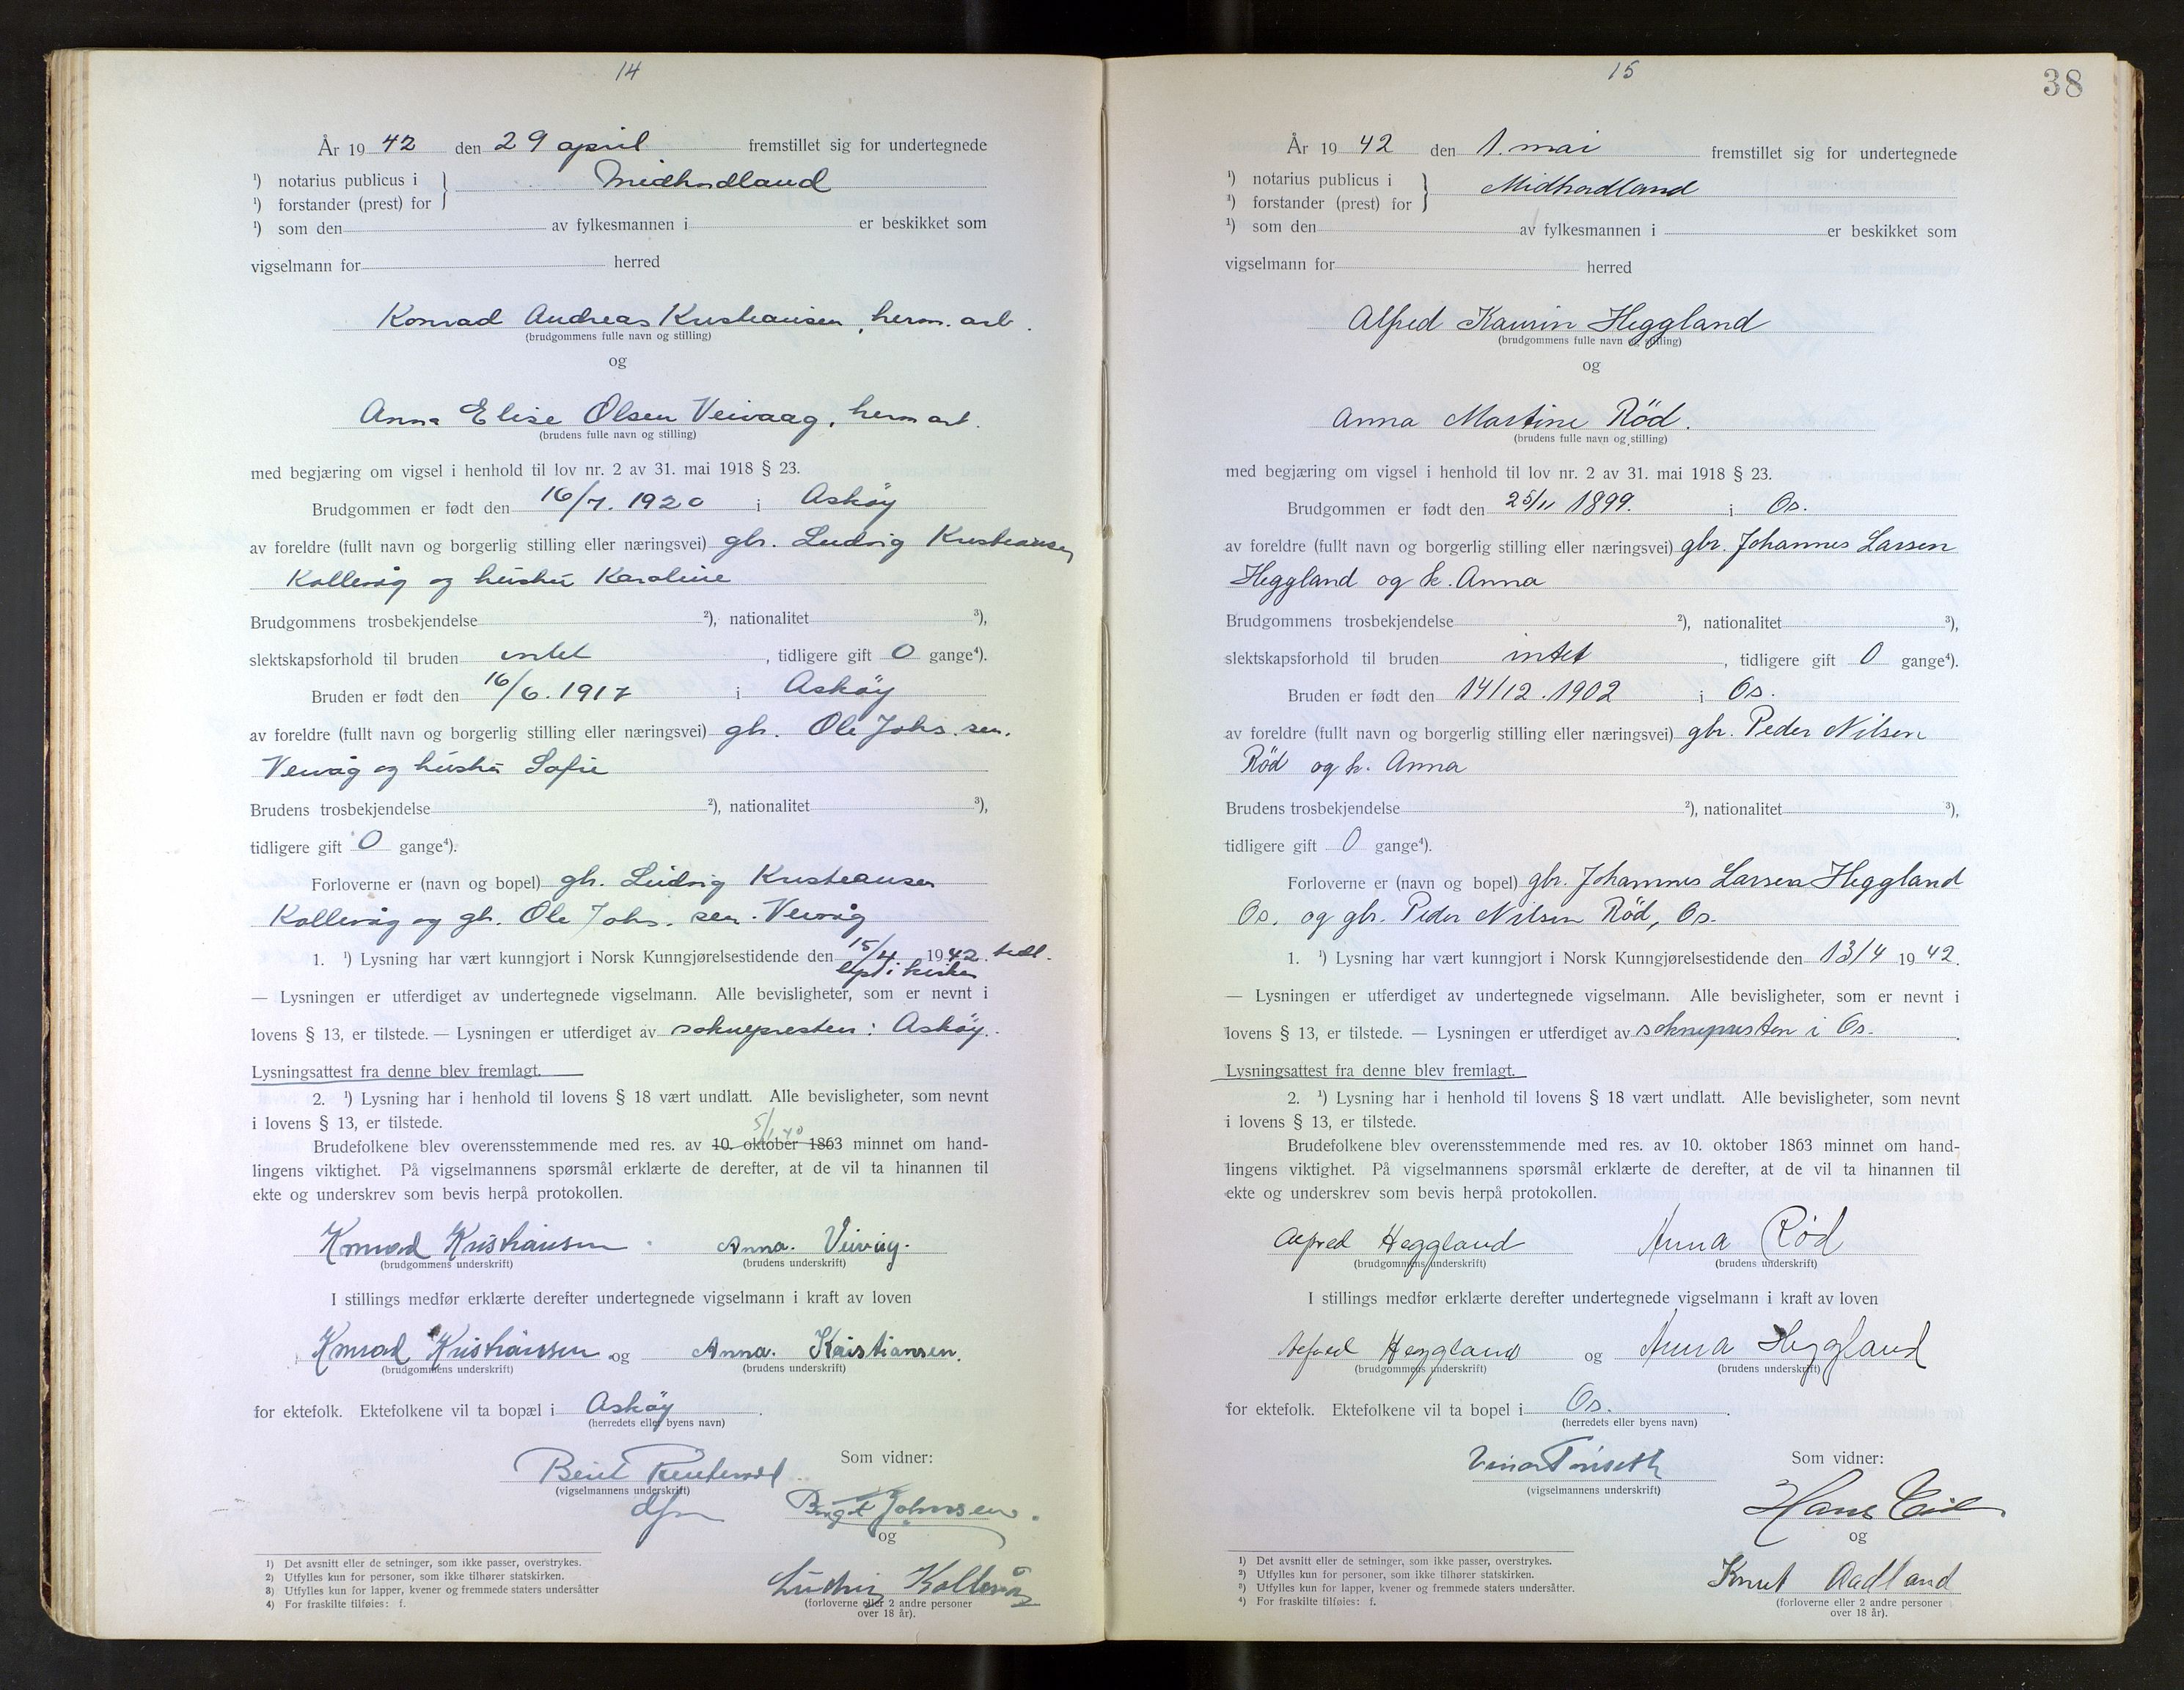 14
År 19 42 den 29 april fremstillet sig for undertegnede
¹) notarius publicus i
¹) forstander (prest) for } Midhordland
¹) som den av fylkesmannen i er beskikket som
vigselmann for herred
Konrad Andreas Kristiansen, herm. arb.
(brudgommens fulle navn og stilling)
og
Anna Elise Olsen Veivaag, herm arb.
(brudens fulle navn og stilling)
med begjæring om vigsel i henhold til lov nr. 2 av 31. mai 1918 § 23.
Brudgommen er født den 16/7. 1920 i Askøy
av foreldre (fullt navn og borgerlig stilling eller næringsvei) gbr. Ludvig Kristiansen
Kollevåg og hustru Karoline
Brudgommens trosbekjendelse ²), nationalitet ³),
slektskapsforhold til bruden intet, tidligere gift 0 gange⁴).
Bruden er født den 16/6. 1917 i Askøy
av foreldre (fullt navn og borgerlig stilling eller næringsvei) gbr. Ole Johs. sen.
Veivåg og hustru Sofie
Brudens trosbekjendelse ²), nationalitet ³),
tidligere gift 0 gange⁴).
Forloverne er (navn og bopel) gbr. Ludvig Kristiansen
Kollevåg og gbr. Ole Johs. sen. Veivåg
1. ¹) Lysning har vært kunngjort i Norsk Kunngjørelsestidende den 15/4 1942.
lyst i kirken
— Lysningen er utferdiget av undertegnede vigselmann. Alle bevisligheter, som er nevnt i
lovens § 13, er tilstede. — Lysningen er utferdiget av soknepresten i Askøy.
Lysningsattest fra denne blev fremlagt.
2. ¹) Lysning har i henhold til lovens § 18 vært undlatt. Alle bevisligheter, som nevnt
i lovens § 13, er tilstede.
Brudefolkene blev overensstemmende med res. av 10. oktober 1863 minnet om hand-
lingens viktighet. På vigselmannens spørsmål erklærte de derefter, at de vil ta hinannen til
ekte og underskrev som bevis herpå protokollen.
Konrad Kristiansen Anna. Veivåg.
(brudgommens underskrift) (brudens underskrift)
I stillings medfør erklærte derefter undertegnede vigselmann i kraft av loven
Konrad Kristiansen og Anna. Kristiansen.
(brudgommens underskrift) (brudens underskrift)
for ektefolk. Ektefolkene vil ta bopæl i Askøy.
(herredets eller byens navn)
Som vidner:
Berit
(vigselmannens underskrift)
dfm
Birgit Johnsen.
og
Ludvig Kollevåg
(forloverne eller 2 andre personer
over 18 år).
1) Det avsnitt eller de setninger, som ikke passer, overstrykes.
2) Utfylles kun for personer, som ikke tilhører statskirken.
3) Utfylles kun for lapper, kvener og fremmede staters undersåtter
4) For fraskilte tilføies: f.
15
38
År 19 42 den 1. mai fremstillet sig for undertegnede
¹) notarius publicus i
¹) forstander (prest) for } Midhordland
¹) som den av fylkesmannen i er beskikket som
vigselmann for herred
Alfred Kaurin Heggland
(brudgommens fulle navn og stilling)
og
Anna Martine Röd.
(brudens fulle navn og stilling)
med begjæring om vigsel i henhold til lov nr. 2 av 31. mai 1918 § 23.
Brudgommen er født den 25/11 1899. i Os.
av foreldre (fullt navn og borgerlig stilling eller næringsvei) gbr. Johannes Larsen
Heggland og h. Anna
Brudgommens trosbekjendelse ²), nationalitet ³),
slektskapsforhold til bruden intet, tidligere gift 0 gange⁴).
Bruden er født den 14/12. 1902 i Os.
av foreldre (fullt navn og borgerlig stilling eller næringsvei) gbr. Peder Nilsen
Röd og h. Anna
Brudens trosbekjendelse ²), nationalitet ³),
tidligere gift 0 gange⁴).
Forloverne er (navn og bopel) gbr. Johannes Larsen Heggland
Os. og gbr. Peder Nilsen Röd, Os.
1. ¹) Lysning har vært kunngjort i Norsk Kunngjørelsestidende den 13/4 1942.
— Lysningen er utferdiget av undertegnede vigselmann. Alle bevisligheter, som er nevnt i
lovens § 13, er tilstede. — Lysningen er utferdiget av soknepresten i Os.
Lysningsattest fra denne blev fremlagt.
2. ¹) Lysning har i henhold til lovens § 18 vært undlatt. Alle bevisligheter, som nevnt
i lovens § 13, er tilstede.
Brudefolkene blev overensstemmende med res. av 10. oktober 1863 minnet om hand-
lingens viktighet. På vigselmannens spørsmål erklærte de derefter, at de vil ta hinannen til
ekte og underskrev som bevis herpå protokollen.
Alfred Heggland Anna Rød
(brudgommens underskrift) (brudens underskrift)
I stillings medfør erklærte derefter undertegnede vigselmann i kraft av loven
Alfred Heggland og Anna Heggland
(brudgommens underskrift) (brudens underskrift)
for ektefolk. Ektefolkene vil ta bopel i Os.
(herredets eller byens navn)
Som vidner:
(vigselmannens underskrift)
Hans Eid
og
Knut Aadland
(forloverne eller 2 andre personer
over 18 år).
1) Det avsnitt eller de setninger, som ikke passer, overstrykes.
2) Utfylles kun for personer, som ikke tilhører statskirken.
3) Utfylles kun for lapper, kvener og fremmede staters undersåtter.
4) For fraskilte tilføies: f.